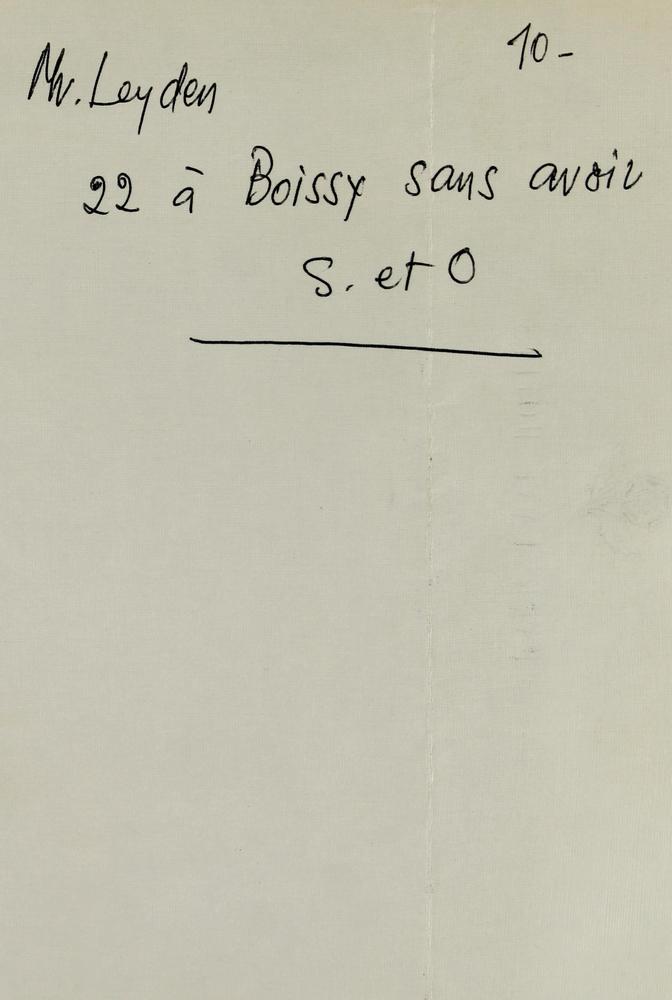 10-
Mr. Leyden
22 à Boissy sans avoir
S. et O